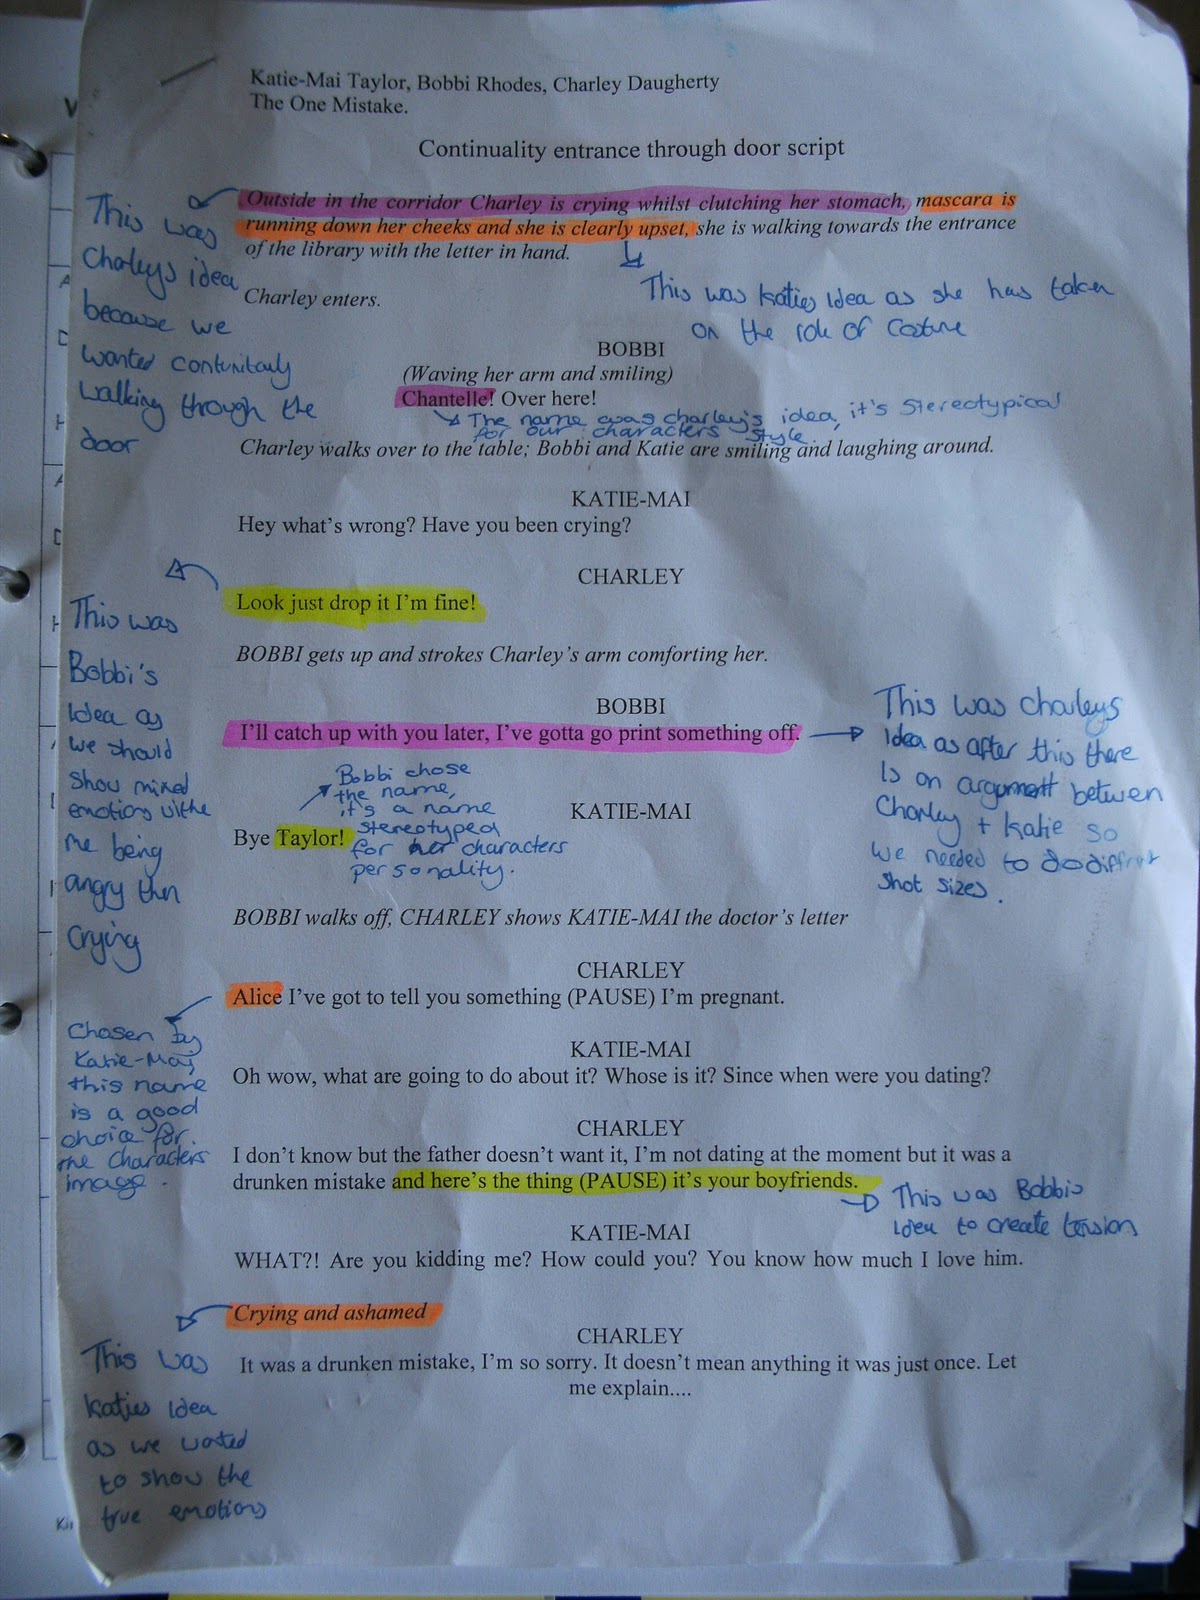 Katie-Mai Taylor, Bobbi Rhodes, Charley Daugherty
The One Mistake.
Continuality entrance through door script
Outside in the corridor Charley is crying whilst clutching her stomach, mascara is
running down her cheeks and she is clearly upset, she is walking towards the entrance
of the library with the letter in hand.
This was
Charleys idea
because we
wanted
walking through the
door
This was Katies idea as she has taken
on the role of Costume
Charley enters.
BOBBI
(Waving her arm and smiling)
Chantelle! Over here!
The name was charley's idea, it's stereotypical
for our characters style
Charley walks over to the table; Bobbi and Katie are smiling and laughing around.
KATIE-MAI
Hey what's wrong? Have you been crying?
CHARLEY
Look just drop it I'm fine!
This was
Bobbi's
idea as
we should
show mixed
emotions
me being
angry then
crying
BOBBI gets up and strokes Charley's arm comforting her.
BOBBI
I'll catch up with you later, I've gotta go print something off.
This was charleys
idea as after this there
is an argument between
Charley + Katie so
we needed to do
shot sizes.
KATIE-MAI
Bye Taylor!
Bobbi chose
the name,
it's a name
stereotyped
for her characters
personality.
BOBBI walks off, CHARLEY shows KATIE-MAI the doctor's letter
CHARLEY
Alice I've got to tell you something (PAUSE) I'm pregnant.
Chosen by
Katie-Mai,
this name
is a good
choice for
the characters
image.
KATIE-MAI
Oh wow, what are going to do about it? Whose is it? Since when were you dating?
CHARLEY
I don't know but the father doesn't want it, I'm not dating at the moment but it was a
drunken mistake and here's the thing (PAUSE) it's your boyfriends.
This was Bobbis
idea to create tension
KATIE-MAI
WHAT?! Are you kidding me? How could you? You know how much I love him.
Crying and ashamed
This was
Katies idea
as we wanted
to show the
true emotions
CHARLEY
It was a drunken mistake, I'm so sorry. It doesn't mean anything it was just once. Let
me explain....